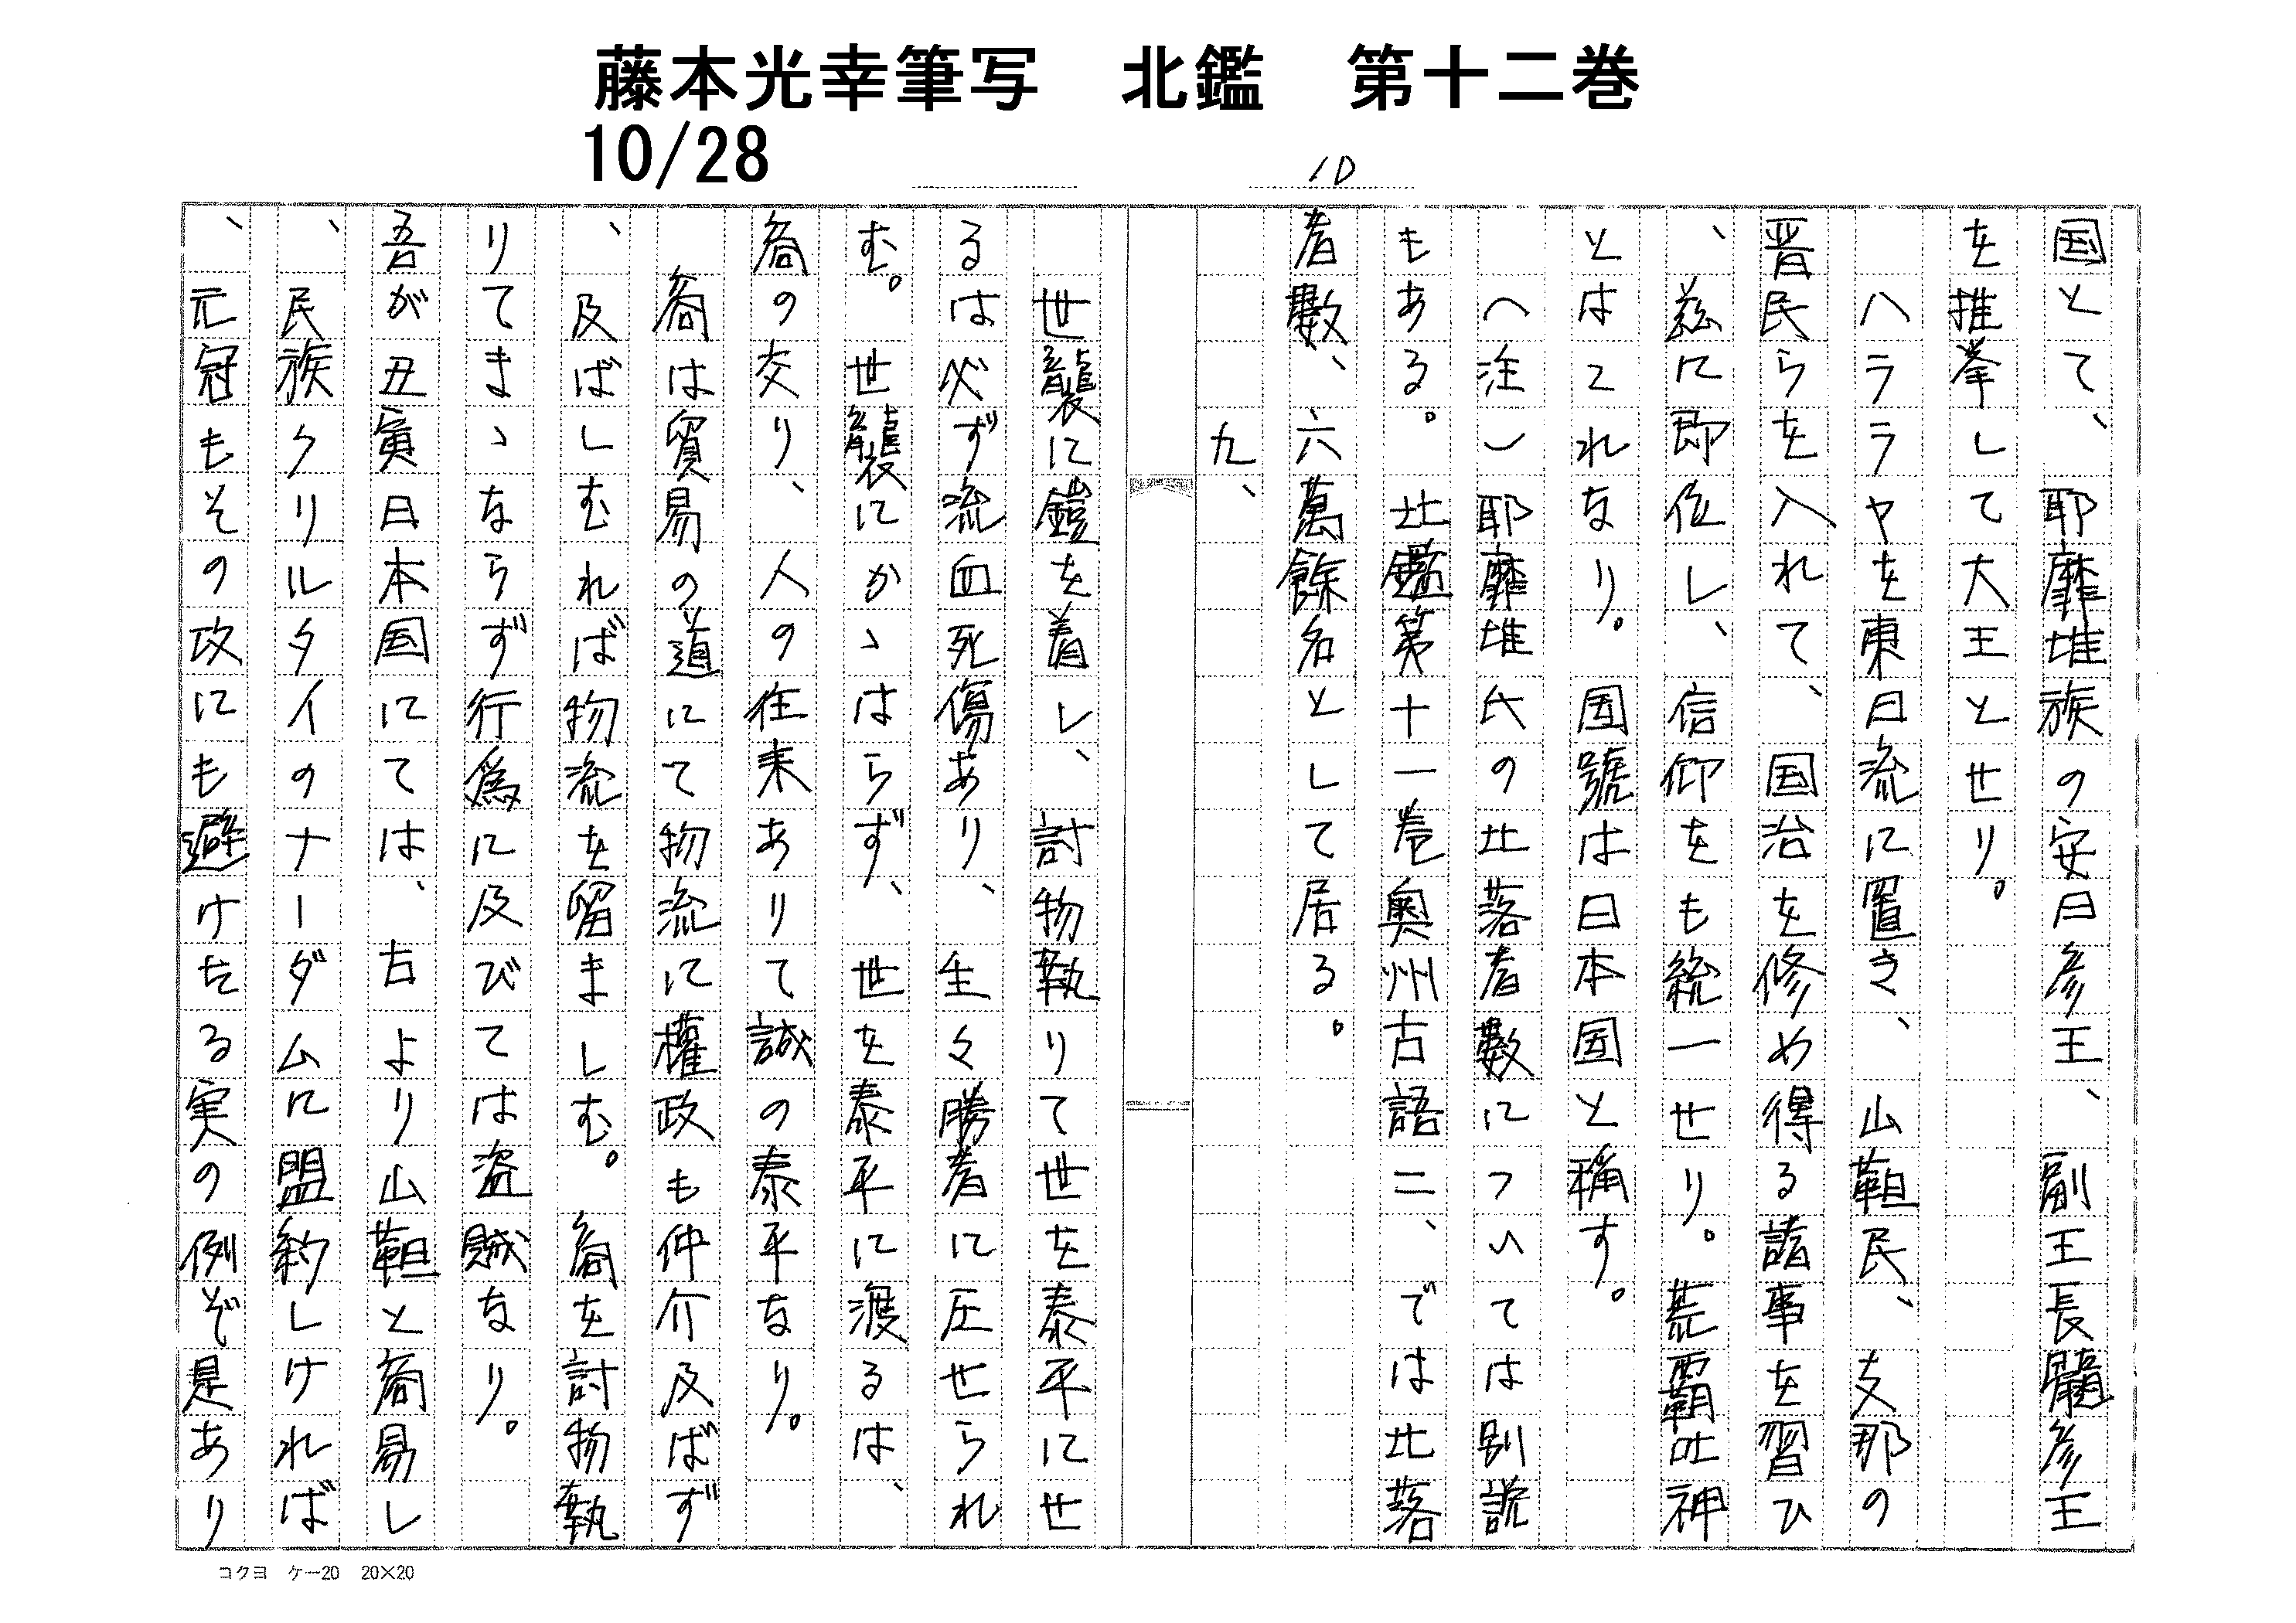 藤本光幸筆写　北鑑　第十二巻
10/28
10
国とて、耶靡堆族の安日彦王、副王長髄彦王
を推挙して大王とせり。
ハララヤを東日流に置き、山靼民、支那の
晋民らを入れて、国治を修め得る諸事を習ひ
、茲に即位し、信仰をも統一せり。荒覇吐神
とはこれなり。国號は日本国と稱す。
（注）耶靡堆氏の北落者數については別説
もある。北鑑第十一巻奥州古語二、では北落
者數、六萬餘名として居る。
九、
世襲に鎧を着し、討物執りて世を泰平にせ
るは必ず流血死傷あり、生々勝者に圧せられ
む。世襲にかゝはらず、世を泰平に渡るは、
商の交り、人の往来ありて誠の泰平なり。
商は貿易の道にて物流に權政も仲介及ばず
、及ばしむれば物流を留ましむ。商を討物執
りてまゝならず行爲に及びては盗賊なり。
吾が丑寅日本国にては、古より山靼と商易し
、民族クリルタイのナーダムに盟約しければ
、元冠もその攻にも避けたる実の例ぞ是あり
コクヨ　ケー20　20×20